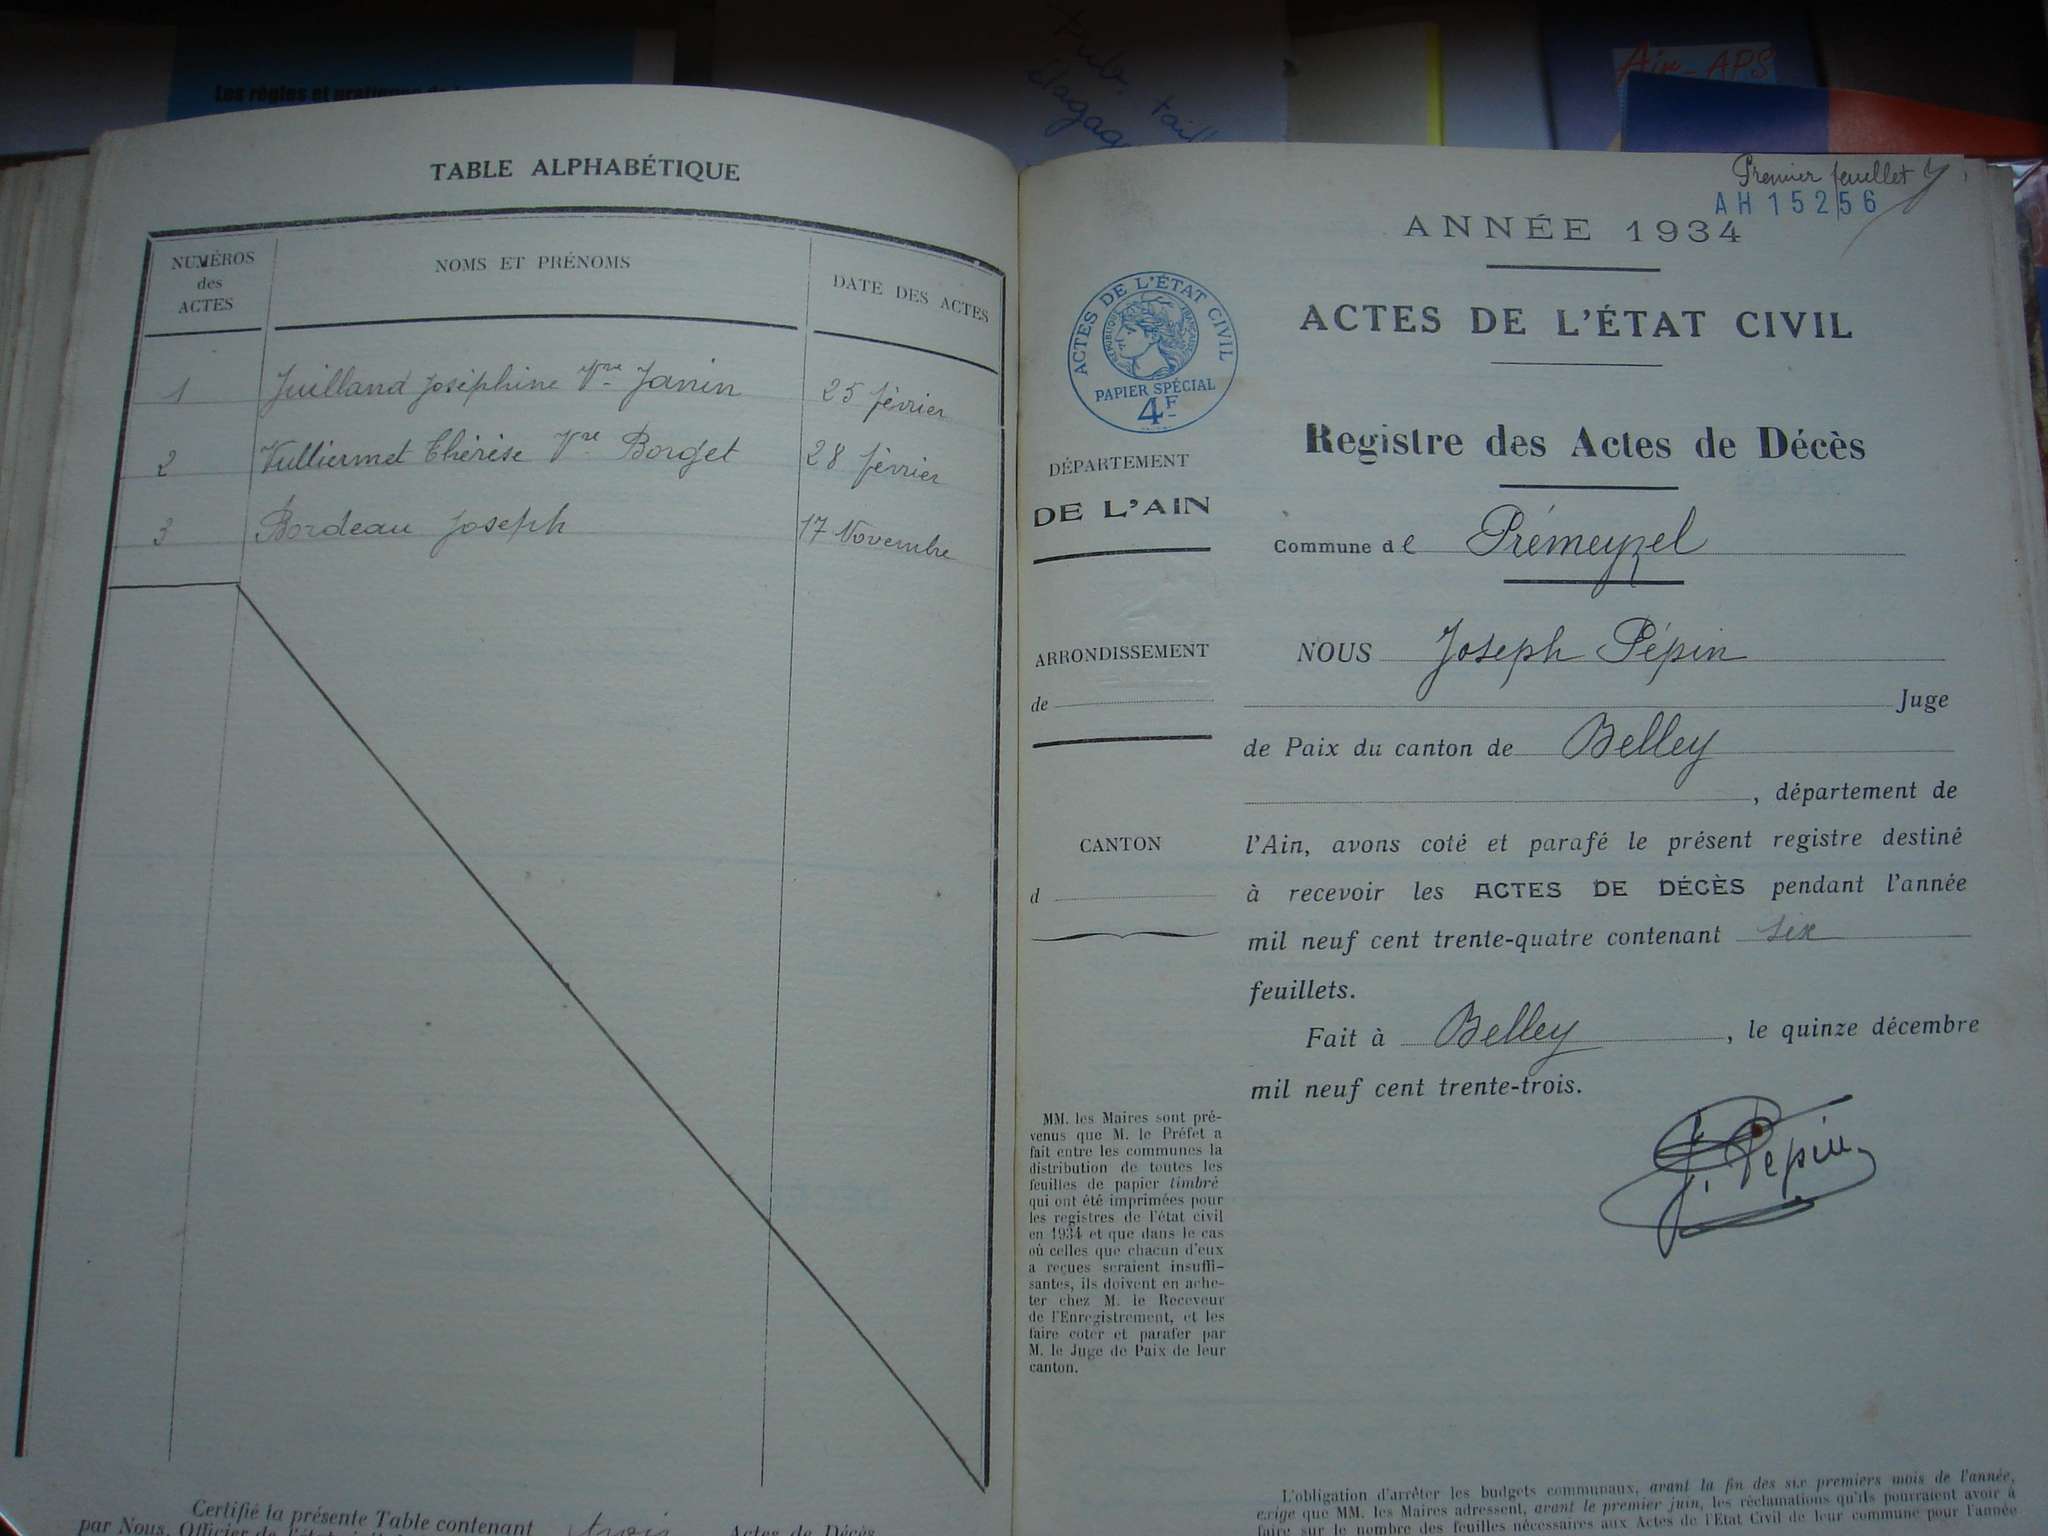 Les règles et pratique
Air-APS
TABLE ALPHABÉTIQUE
NUMÉROS des ACTES
NOMS ET PRÉNOMS
DATE DES ACTES
1 Juilland Joséphine Vve Janin 25 février
2 Vulliermet Thérèse Vve Borget 28 février
3 Bordeau Joseph 17 Novembre
Certifié la présente Table contenant trois Actes de Décès
par Nous, Officier de l'état civil
Premier feuillet
AH 15256
ANNÉE 1934
ACTES DE L'ÉTAT CIVIL
RÉPUBLIQUE FRANÇAISE
PAPIER SPÉCIAL
4F
ACTES DE L'ÉTAT CIVIL
Registre des Actes de Décès
DÉPARTEMENT
DE L'AIN
Commune de Prémeyzel
ARRONDISSEMENT
de
CANTON
d
NOUS Joseph Pépin
Juge
de Paix du canton de Belley
, département de
l'Ain, avons coté et parafé le présent registre destiné
à recevoir les ACTES DE DÉCÈS pendant l'année
mil neuf cent trente-quatre contenant six
feuillets.
Fait à Belley, le quinze décembre
mil neuf cent trente-trois.
J. Pépin
MM. les Maires sont pré-
venus que M. le Préfet a
fait entre les communes la
distribution de toutes les
feuilles de papier timbré
qui ont été imprimées pour
les registres de l'état civil
en 1934 et que dans le cas
où celles que chacun d'eux
a reçues seraient insuffi-
santes, ils doivent en ache-
ter chez M. le Receveur
de l'Enregistrement, et les
faire coter et parafer par
M. le Juge de Paix de leur
canton.
L'obligation d'arrêter les budgets communaux, avant la fin des six premiers mois de l'année,
exige que MM. les Maires adressent, avant le premier juin, les réclamations qu'ils pourraient avoir à
faire sur le nombre des feuilles nécessaires aux Actes de l'Etat Civil de leur commune pour l'année